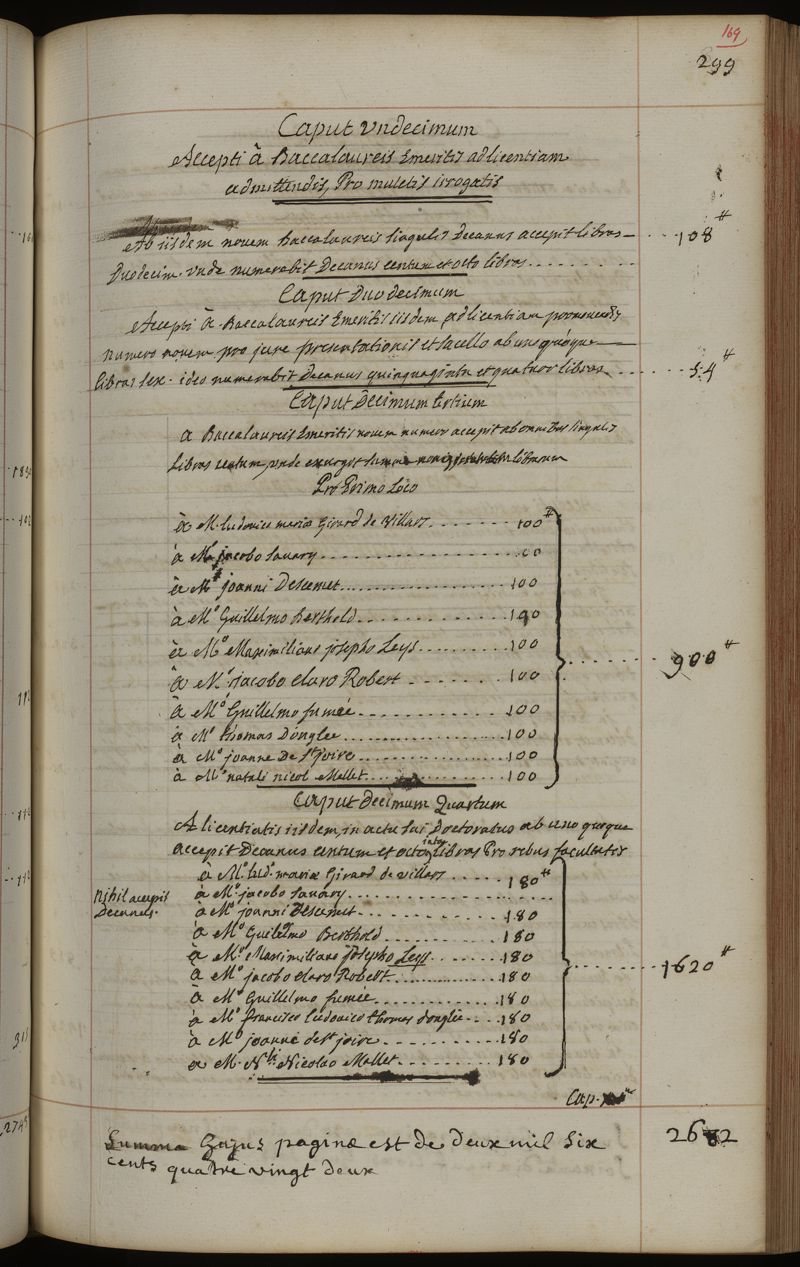 169
299
Caput undecimum
Accepti à Baccalaureis Emeritis ad licentiam
admittendis, Pro mulctis irrogatis
Ab iisdem novem Baccalaureis singulis Decanus accepit libras 108 ₶
Duodecim. unde numerabit Decanus centum et octo libras
Caput Duodecimum
Accepti à Baccalaureis Emeritis iisdem, ad licentiam promovendis
numero novem pro jure presentationis et sacello ab uno quoque
libras sex. ideo numerabit Decanus quinquaginta et quatuor libras 54 ₶
Caput Decimum tertium
a Baccalaureis Emeritis novem numero accepit ab omnibus singulis
libras centum, unde exurgit summa librarum
Pro Primo Loco
à M. ludovico maria Girard de Villars 100 ₶
à Mo jacobo Savary 00
à Mo joanni Descemet 100
à Mo Guillelmo Berthold 100
à Mo Maximiliano josepho Leys 100
à Mo jacobo claro Robert 100
à Mo Guillelmo fumée 100
à Mo thomas Donglee 100
à Mo joanne De St joire 100
à Mo natali nicol Mallet 100
900 ₶
Caput decimum Quartum
A licentiatis iisdem, in actu sui Doctoratus ab uno quoque
accepit Decanus centum et octoginta libras Pro rebus facultatis
à Mo lud. maria Girard de villars 180 ₶
nihil accepit
Decanus.
à Mo jacobo Savary
à Mo joanni Descemet 180
à Mo Guilelmo Berthold 180
à Mo Maximiliano josepho Leys 180
à Mo jacobo claro Robert 180
à Mo Guillelmo fumée 180
à Mo francisco ludovico thomas donglée 180
à Mo joanne de St joire 180
à M. Nicolao Mallet 180
1620 ₶
Cap.
Summa hujus paginæ est de deux mil six 2682
cents quatre vingt deux